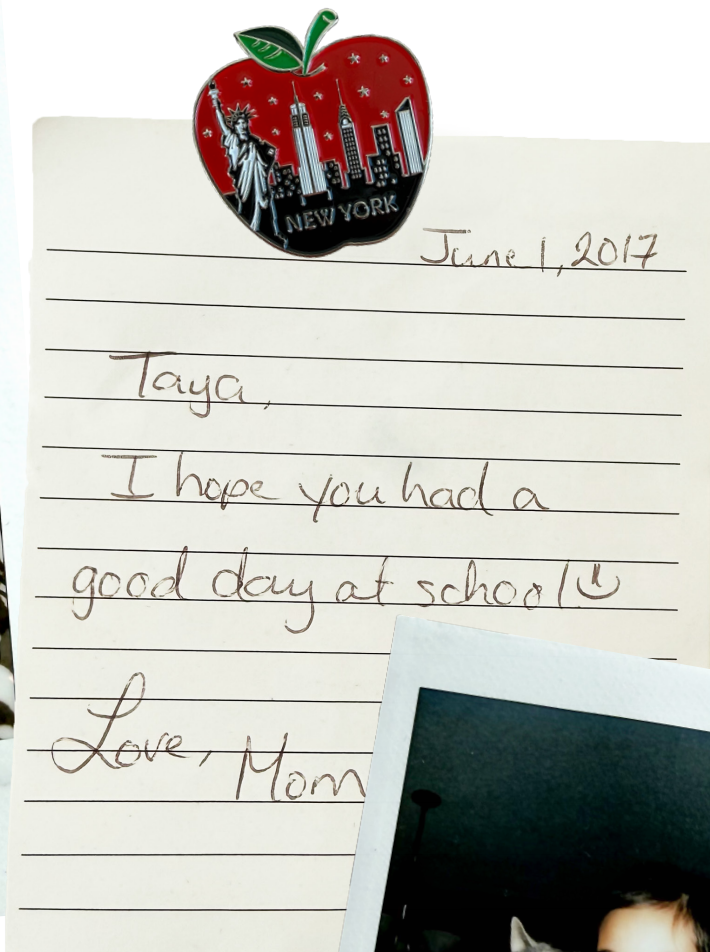 NEW YORK
June 1, 2017
Taya,
I hope you had a
good day at school
Love,
Mom